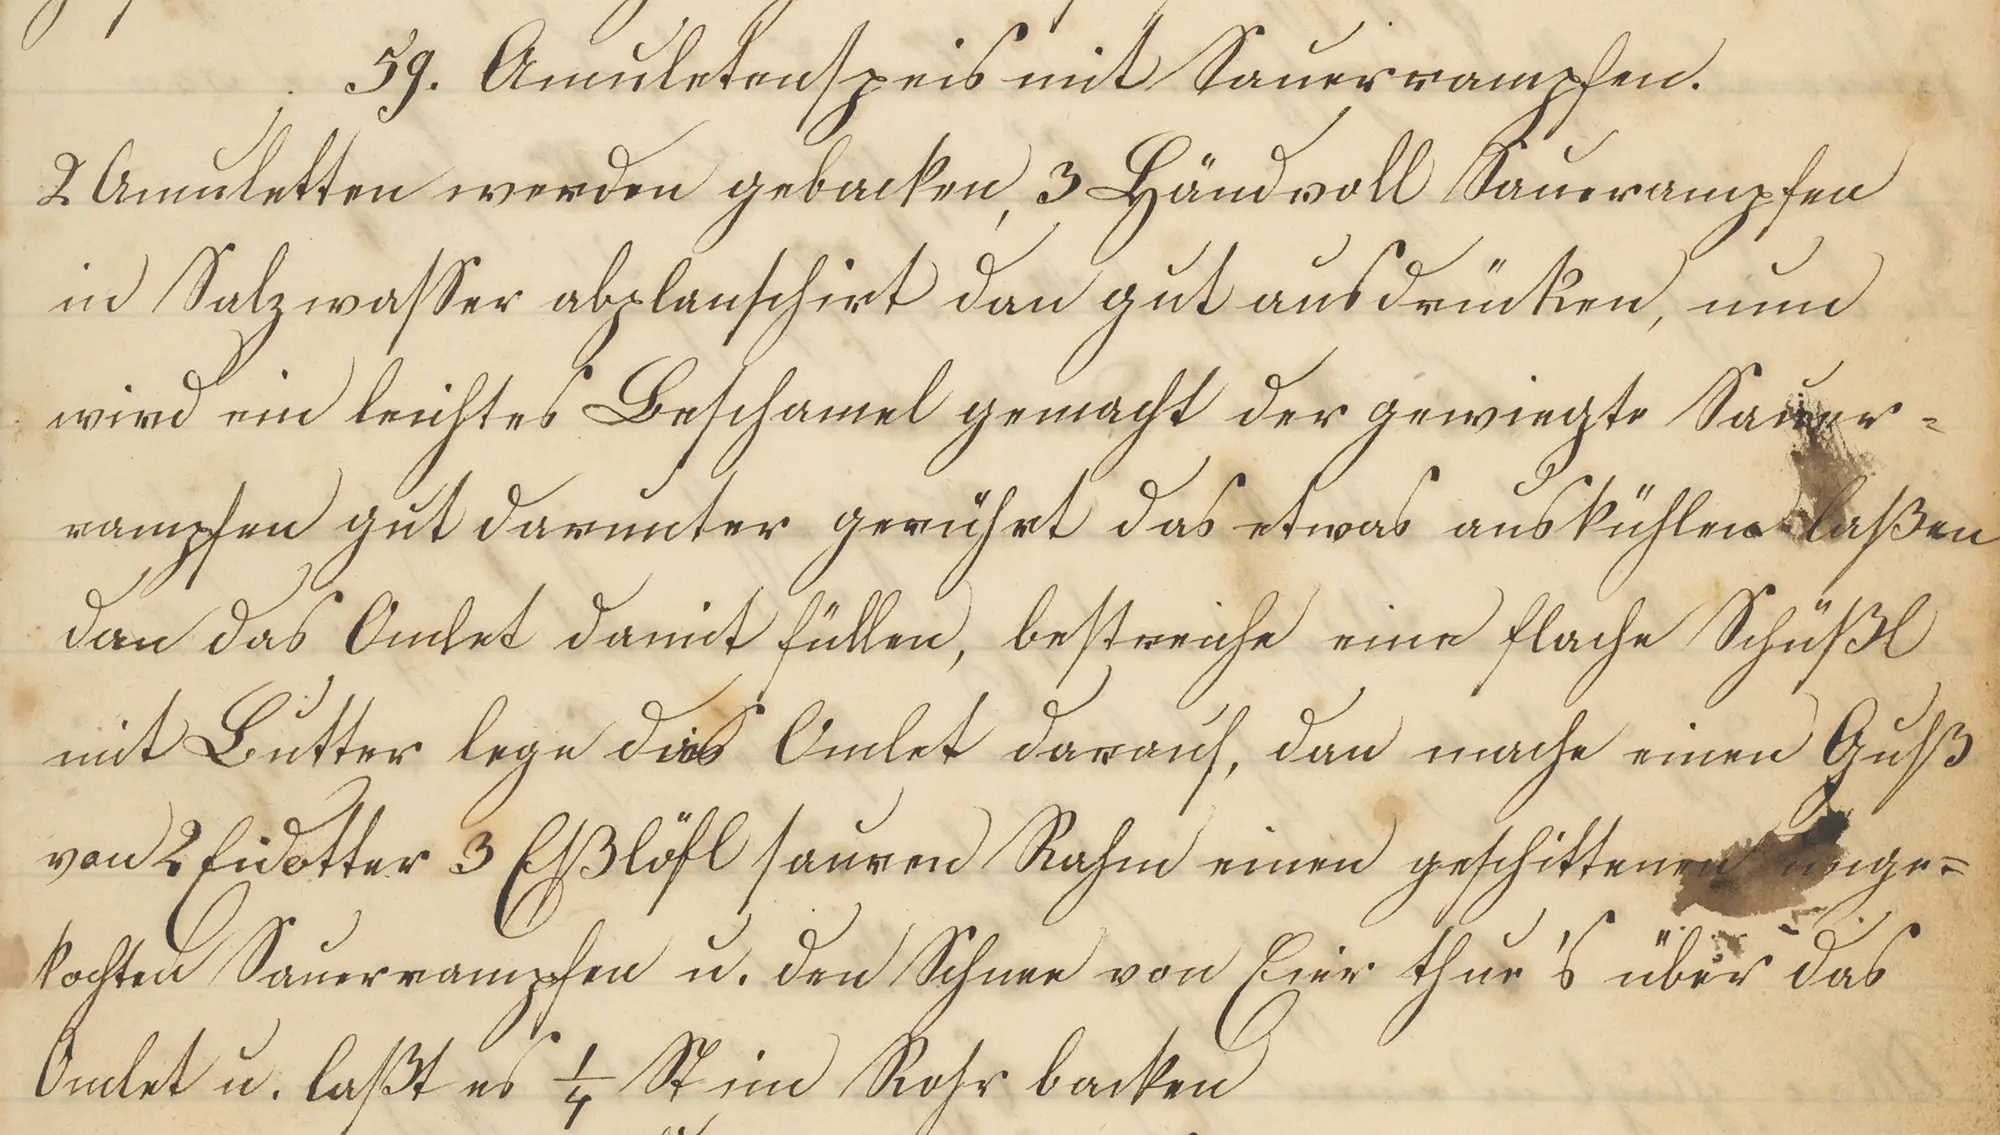 59. Amuletenspeis mit Sauerrampfen.
2 Amuletten werden gebacken, 3 Händvoll Sauerampfen
in Salzwasser abplanschirt dan gut ausdrücken, nun
wird ein leichtes Beschamel gemacht der gewiegte Sauer=
rampfen gut darunter gerührt das etwas auskühlen laßen
dan das Omlet damit füllen, bestreiche eine flache Schüßl
mit Butter lege dies Omlet darauf, dan mache einen Guß
von 2 Eidotter 3 Eßlöfl sauren Rahm einen geschittenen unge=
kochten Sauerrampfen u. den Schnee von Eier thue's über das
Omlet u. laßt es 1/4 St im Rohr backen